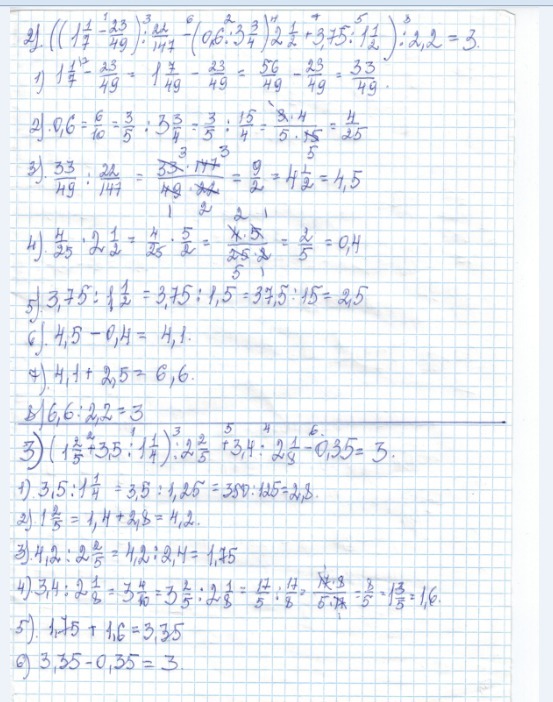 2). ((1 1/7 - 23/49) : 22/147 - (0,6 : 3 3/4) · 2 1/2 + 3,75 : 1 1/2) : 2,2 = 3.
1) 1 1/7 - 23/49 = 1 7/49 - 23/49 = 56/49 - 23/49 = 33/49.
2) 0,6 = 6/10 = 3/5 : 3 3/4 = 3/5 : 15/4 = 3·4/5·15 = 4/25
3). 33/49 : 22/147 = 33·147/49·22 = 9/2 = 4 1/2 = 4,5
4). 4/25 · 2 1/2 = 4/25 · 5/2 = 4·5/25·2 = 2/5 = 0,4
5). 3,75 : 1 1/2 = 3,75 : 1,5 = 37,5 : 15 = 2,5
6). 4,5 - 0,4 = 4,1.
7). 4,1 + 2,5 = 6,6.
8) 6,6 : 2,2 = 3
3) (1 2/5 + 3,5 : 1 1/4) : 2 2/5 + 3,4 : 2 1/8 - 0,35 = 3.
1) 3,5 : 1 1/4 = 3,5 : 1,25 = 350 : 125 = 2,8.
2) 1 2/5 = 1,4 + 2,8 = 4,2.
3) 4,2 : 2 2/5 = 4,2 : 2,4 = 1,75
4) 3,4 : 2 1/8 = 3 4/10 = 3 2/5 : 2 1/8 = 17/5 : 17/8 = 17·8/5·17 = 8/5 = 1 3/5 = 1,6.
5). 1,75 + 1,6 = 3,35
6) 3,35 - 0,35 = 3.